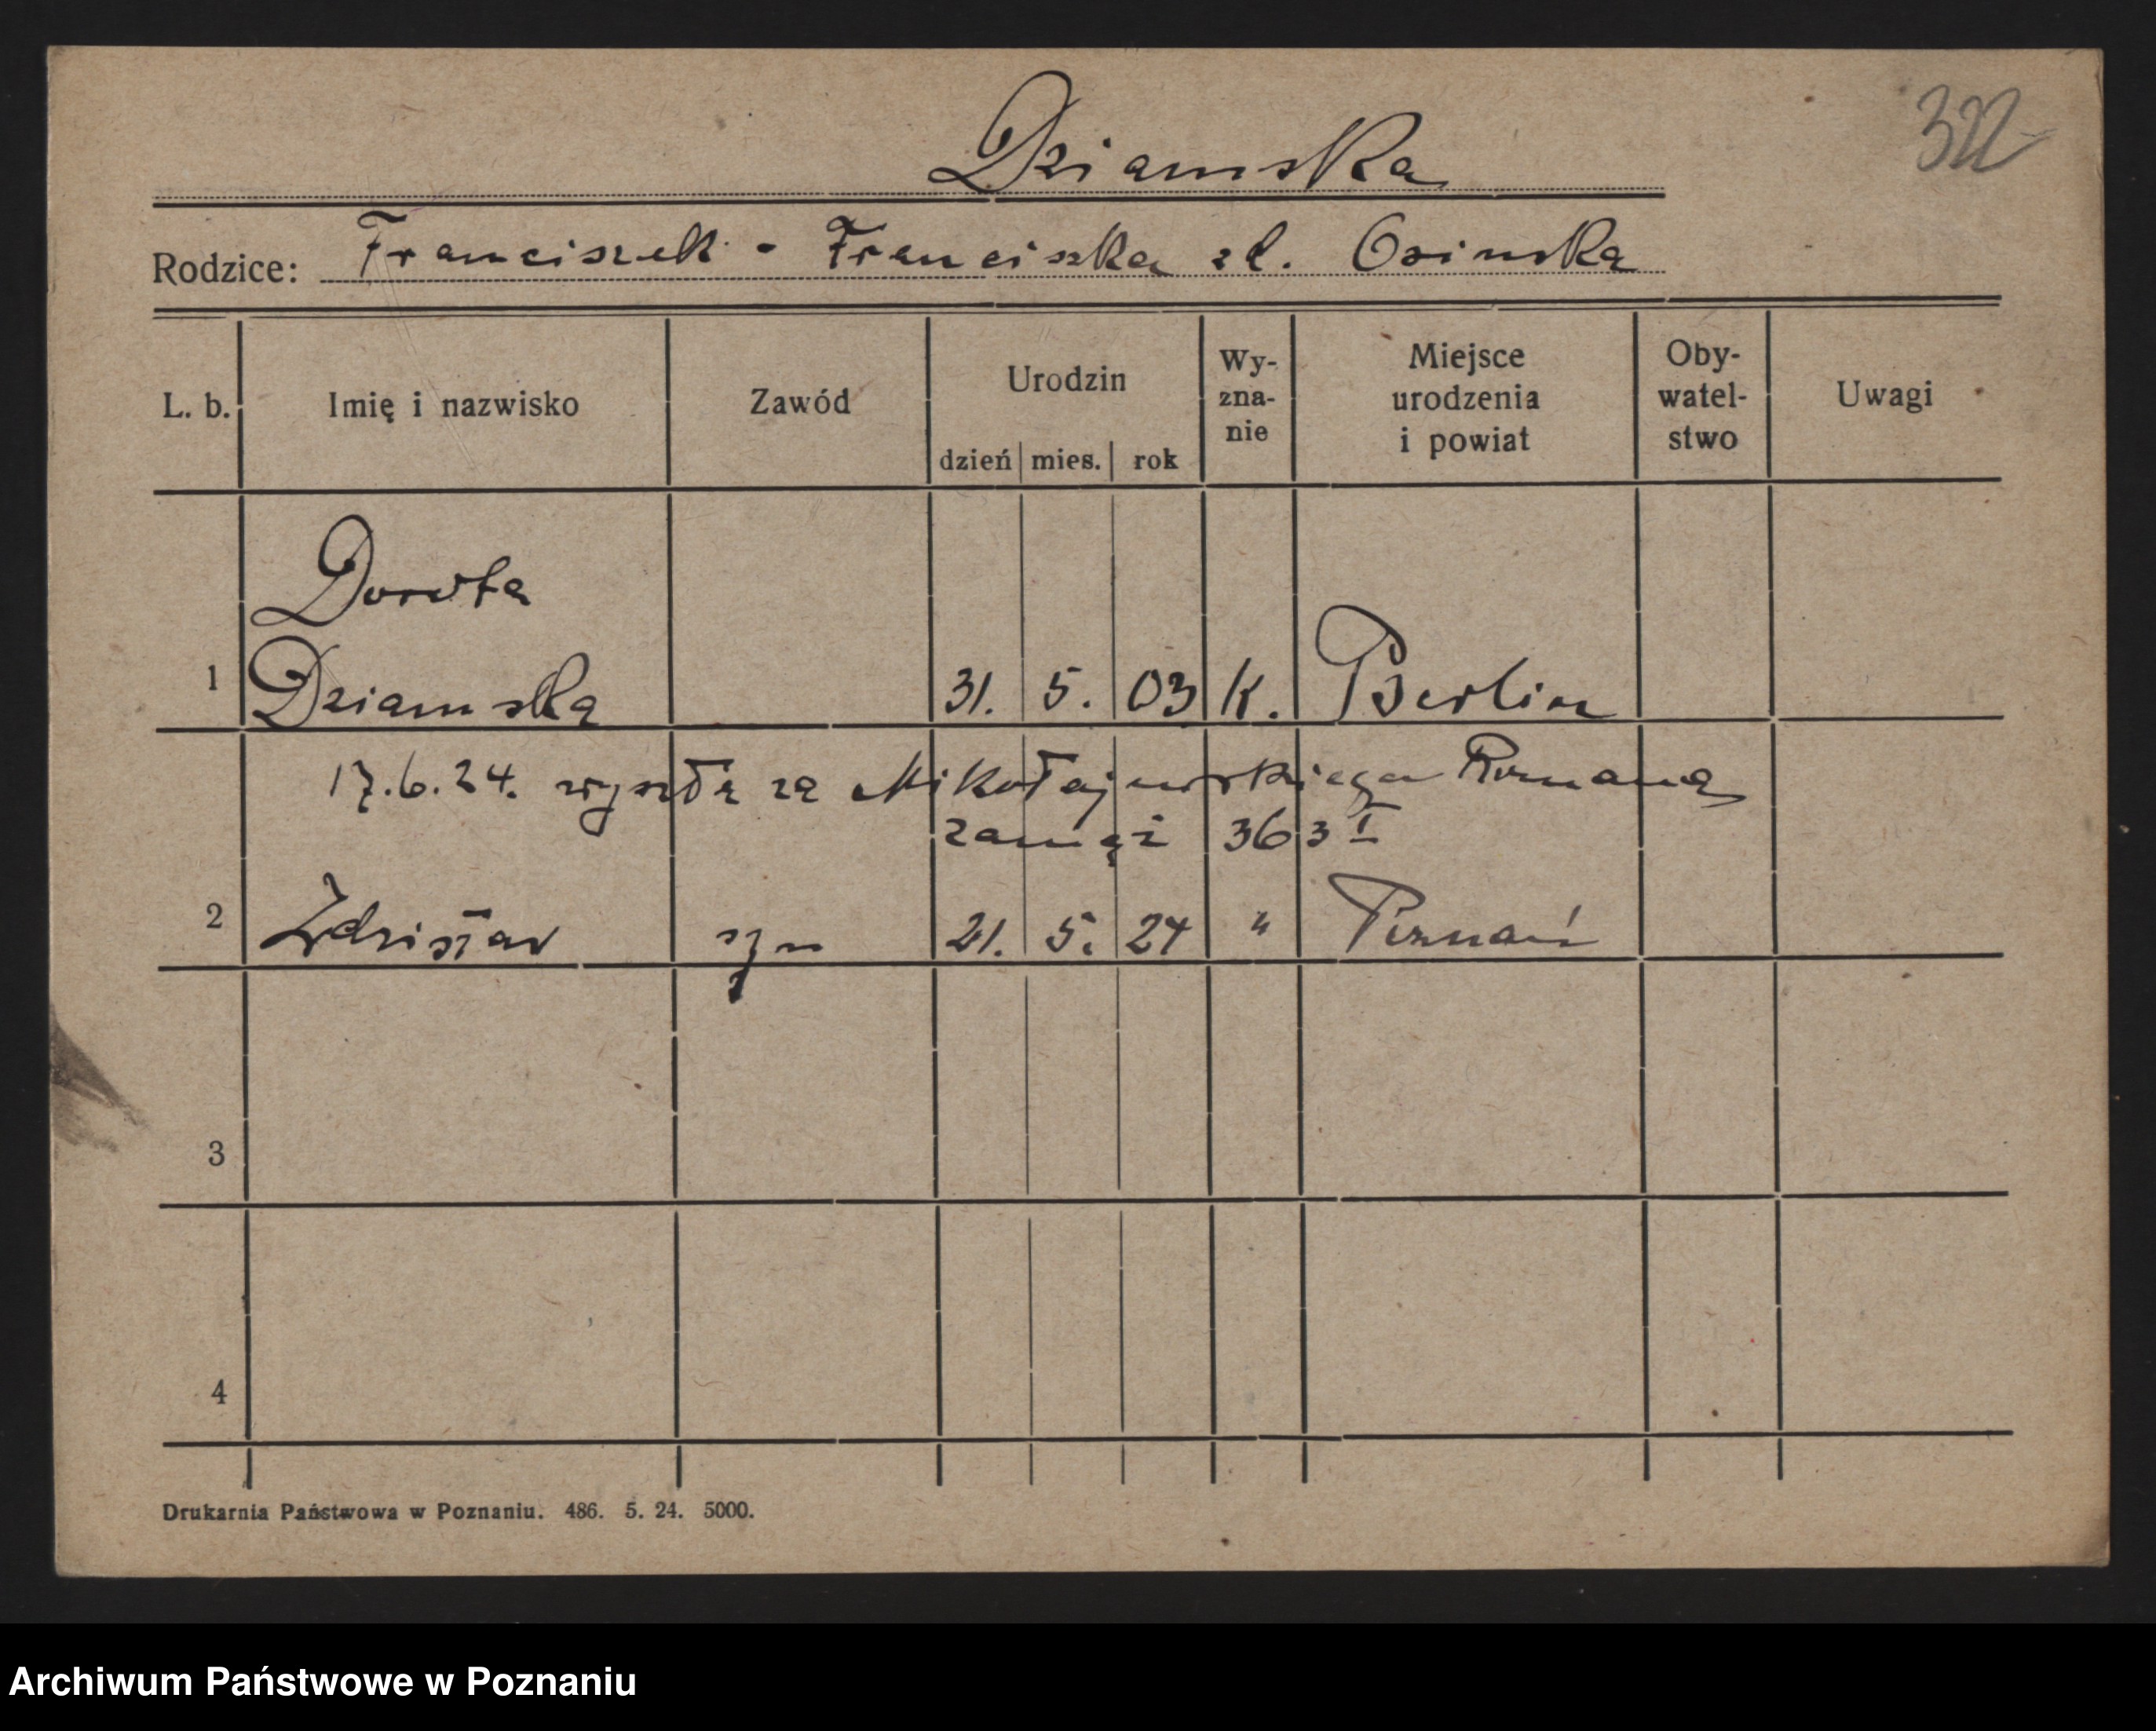 322
Dziamska
Rodzice: Franciszek - Franciszka zd. Osinska
L. b. Imię i nazwisko Zawód Urodzin dzień mies. rok Wy-zna-nie Miejsce urodzenia i powiat Oby-watel-stwo Uwagi
Dorota
1 Dziamska 31. 5. 03 K. Berlin
17.6.24. wyszła za Mikołajewskiego Romana
zamąż 363 I
2 Zdzisław syn 21. 5. 24 " Poznań
3
4
Drukarnia Państwowa w Poznaniu. 486. 5. 24. 5000.
Archiwum Państwowe w Poznaniu